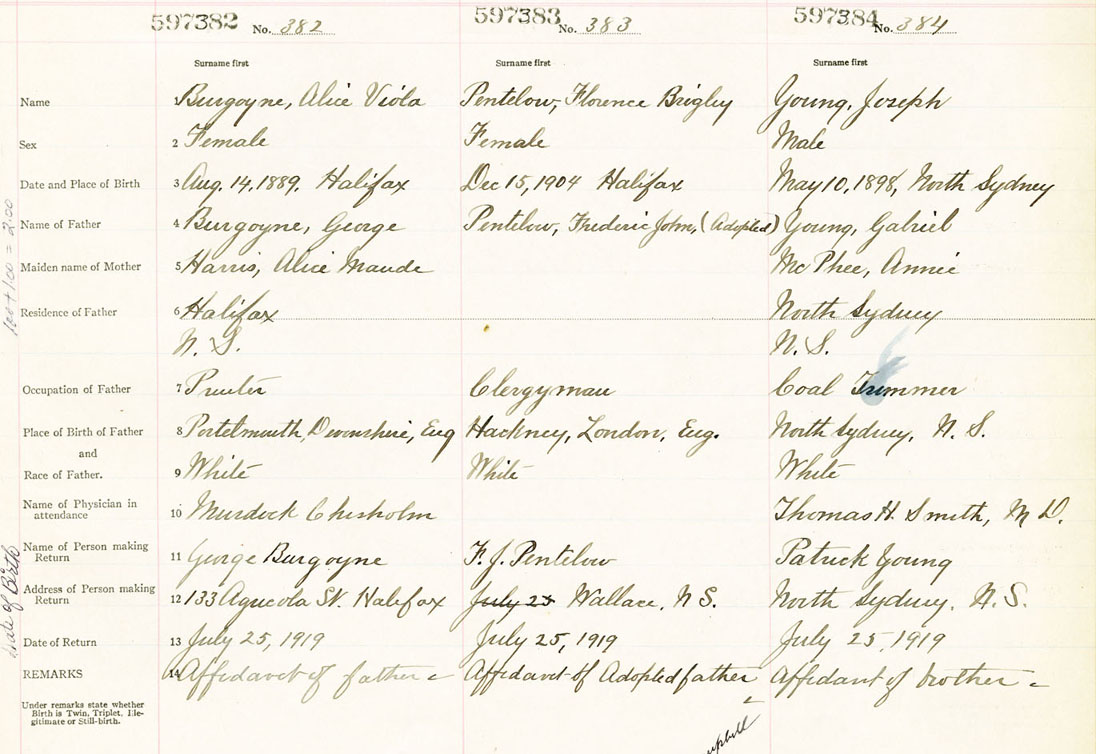 597382 No. 382 597383 No. 383 597384 No. 384
Surname first Surname first Surname first
Name Burgoyne, Alice Viola Pentelow, Florence Brigley Young, Joseph
Sex 2 Female Female Male
Date and Place of Birth 3 Aug. 14, 1889, Halifax Dec 15, 1904 Halifax May 10, 1898, North Sydney
Name of Father 4 Burgoyne, George Pentelow, Frederic John, (Adopted) Young, Gabriel
Maiden name of Mother 5 Harris, Alice Maude McPhee, Annie
Residence of Father 6 Halifax North Sydney
N. S. N. S.
Occupation of Father 7 Printer Clergyman Coal Trimmer
Place of Birth of Father 8 Portelmouth, Devonshire, Eng Hackney, London, Eng. North Sydney, N. S.
and
Race of Father. 9 White White White
Name of Physician in
attendance 10 Murdock Chisholm Thomas H. Smith, M D.
Name of Person making
Return 11 George Burgoyne F. J. Pentelow Patrick Young
Address of Person making
Return 12 133 Agricola St. Halifax July 25 Wallace, N S. North Sydney, N. S.
Date of Return 13 July 25, 1919 July 25, 1919 July 25, 1919
REMARKS 14 Affidavit of father Affidavit of Adopted father Affidavit of brother
Under remarks state whether
Birth is Twin, Triplet, Ille-
gitimate or Still-birth.
1.00 + 1.00 = 2.00
Date of Birth